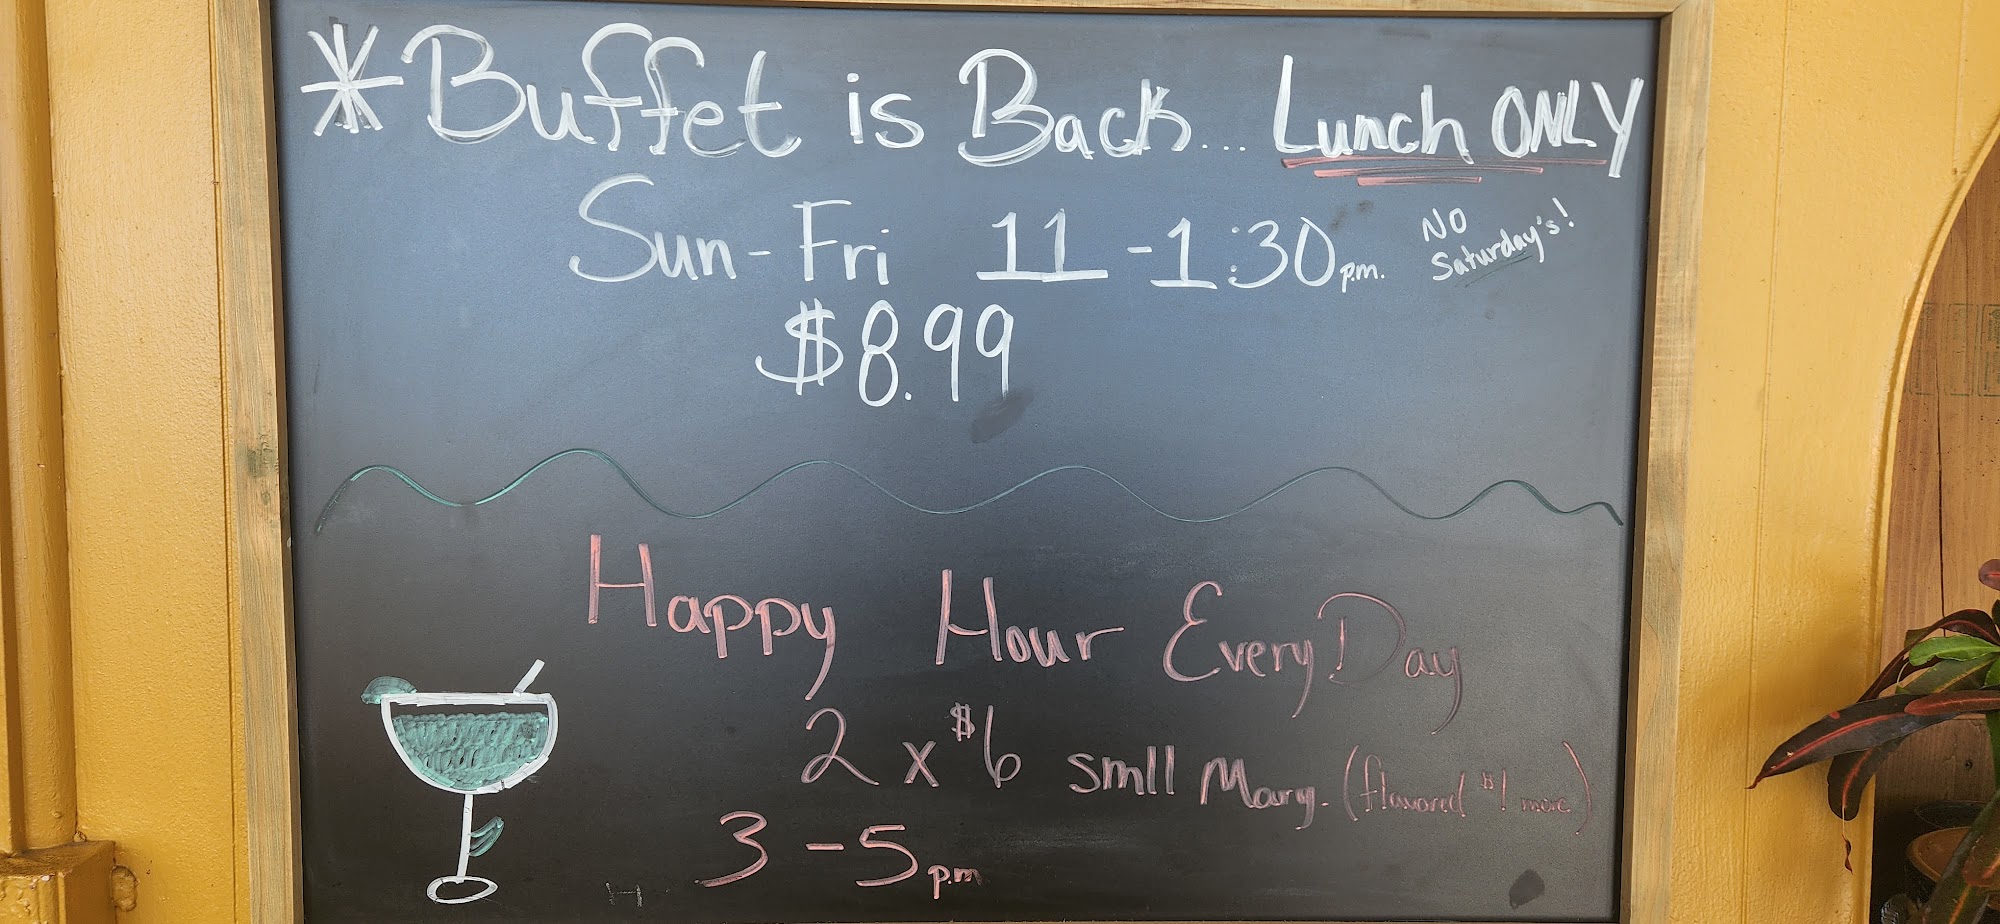 *Buffet is Back... Lunch ONLY
Sun-Fri 11-1:30p.m.
NO
Saturday's!
$8.99
Happy Hour EveryDay
2 x $6 smll Marg. (flavored $1 more)
3-5p.m
H